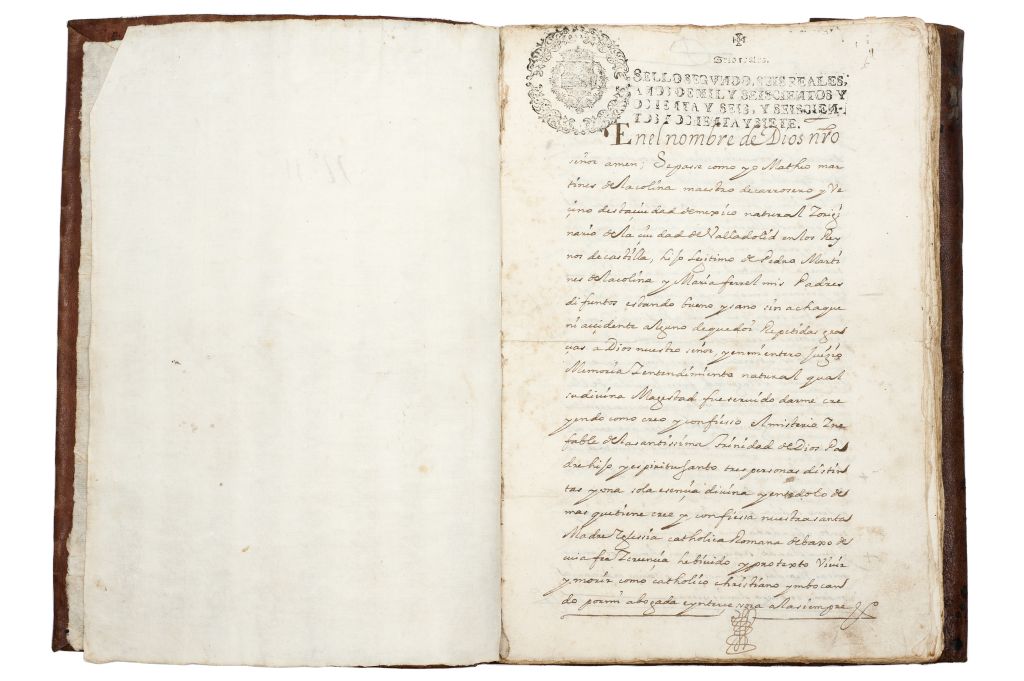 Seis reales.
SELLO SEGVNDO, SEIS REALES,
AÑOS DE MIL Y SEISCIENTOS Y
OCHENTA Y SEIS, Y SEISCIEN-
TOS Y OCHENTA Y SIETE.
En el nombre de Dios nrõ
señor amen; Sepasse como yo Matheo mar
tines de lacolina maestro decarrosero y Ve
çino destaciudad demexico natural Zorigi
nario de la ciudad de Valladolid enlos Rey
nos decastilla, hijo lejitimo de Pedro Marti
nes de lacolina y Maria ferrel mis Padres
difuntos estando bueno y sano sin achaque
ni acçidente alguno dequedoi Repetidas gra
çias a Dios nuestro señor, y enmientero Juiçio
Memoria Zentendimiento natural qual
sudivina Magestad fue servido darme cre
yendo como creo y confiesso elmisterio Yne
fable de la santissima trinidad de Dios Pa
dre hijo y espiritu santo tres personas distin
tas y una sola esençia divina y entodo lo de
mas que tiene cree y confiesa nuestra santa
Madre Yglesia catholica Romana debaxo de
cuia fee Zcrençia he bivido y protexto Vivir
y morir como catholico christiano ymbocan
do por mi abogada eynterçesora alasiempre